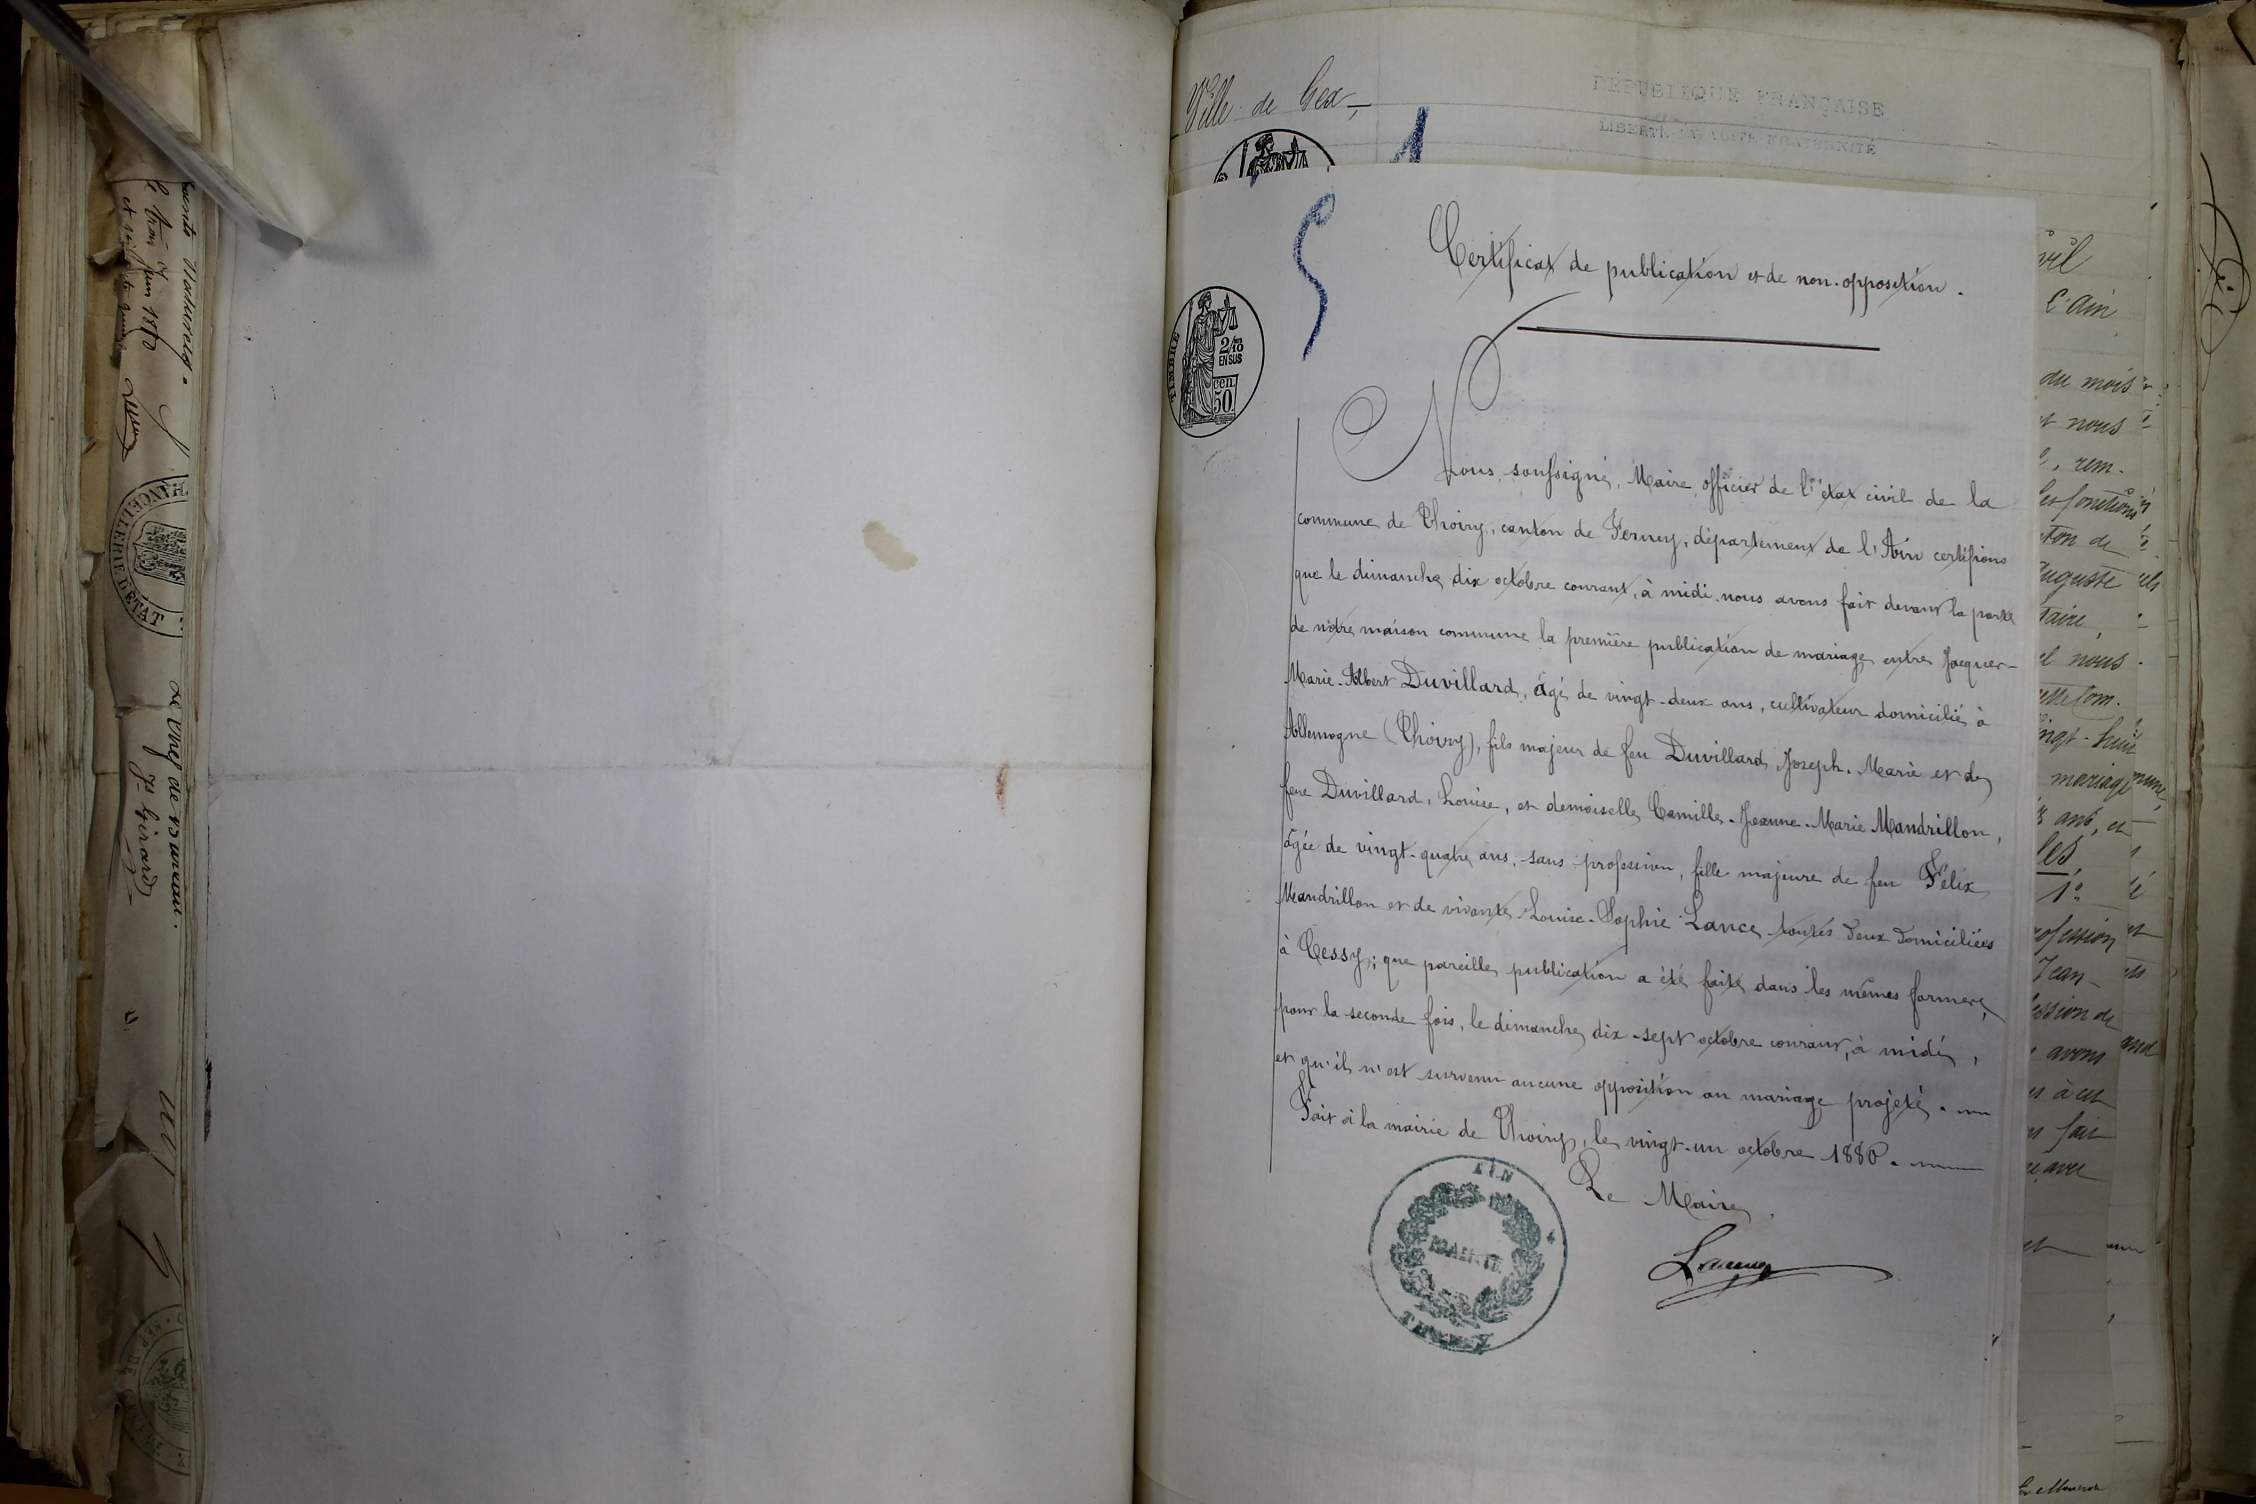 Ville de Gex
RÉPUBLIQUE FRANÇAISE
LIBERTÉ ÉGALITÉ FRATERNITÉ
1
5
Certificat de publication et de non-opposition.
TIMBRE
2/10
EN SUS
cen.
50.
Nous soussigné, Maire, officier de l'état civil de la
commune de Thoiry, canton de Ferney, département de l'Ain certifions
que le dimanche dix octobre courant, à midi, nous avons fait devant la porte
de notre maison commune la première publication de mariage entre Jacques-
Marie-Albert Duvillard, âgé de vingt-deux ans, cultivateur domicilié à
Allemogne (Thoiry), fils majeur de feu Duvillard Joseph-Marie et de
feue Duvillard, Louise, et demoiselle Camille-Jeanne-Marie Mandrillon,
âgée de vingt-quatre ans, sans profession, fille majeure de feu Félix
Mandrillon et de vivante Louise-Sophie Lance toutes deux domiciliées
à Cessy; que pareille publication a été faite dans les mêmes formes,
pour la seconde fois, le dimanche dix-sept octobre courant, à midi,
et qu'il n'est survenu aucune opposition au mariage projeté.
Fait à la mairie de Thoiry, le vingt-un octobre 1880.
Le Maire,
AIN
MAIRIE
THOIRY
vil
l'Ain
du mois
et nous
rem-
les fonctions
ton de
Auguste
taire,
nous
vingt-huit
mariage
ans, et
1º
profession
Jean-
avons
à cet
fait
avec
le trois Juin 1880
CHANCELLERIE D'ÉTAT
Girard